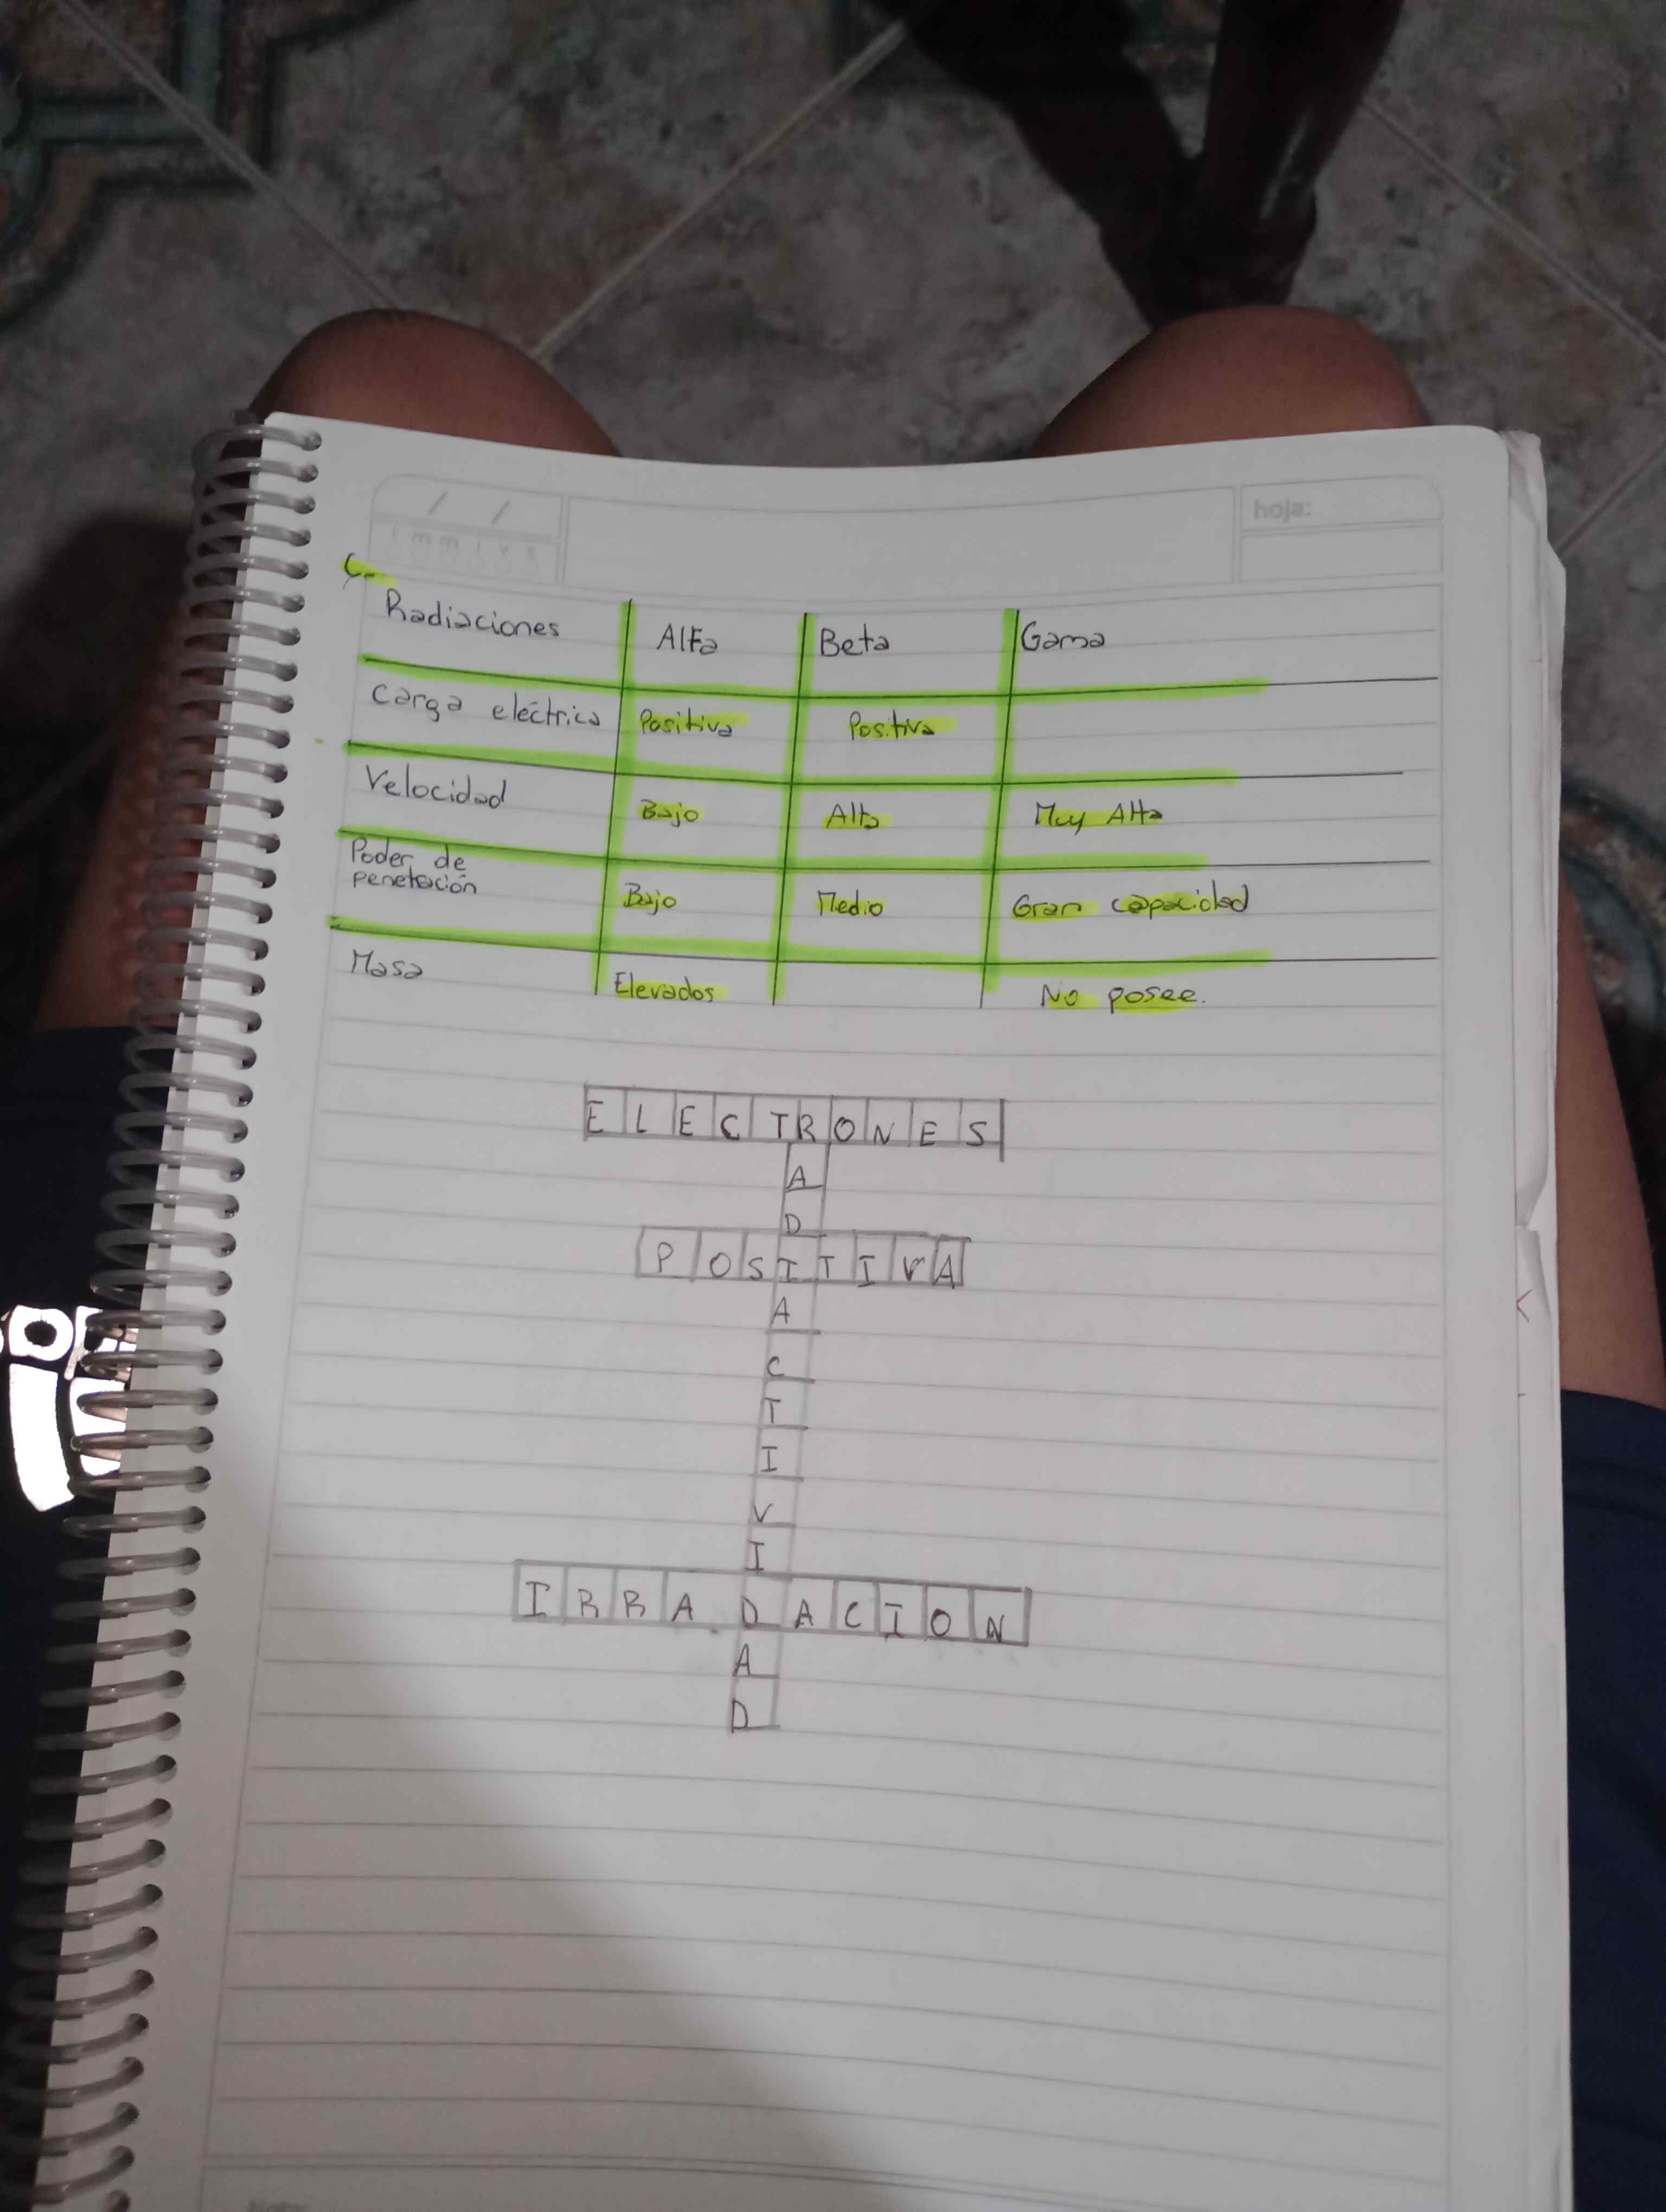 hoja:
C.
Radiaciones Alfa Beta Gama
Carga eléctrica Positiva Positiva
Velocidad Bajo Alta Muy Alta
Poder de
penetación Bajo Medio Gran capacidad
Masa Elevados No posee.
ELECTRONES
A
D
POSITIVA
A
C
T
I
V
I
IRRADACION
A
D